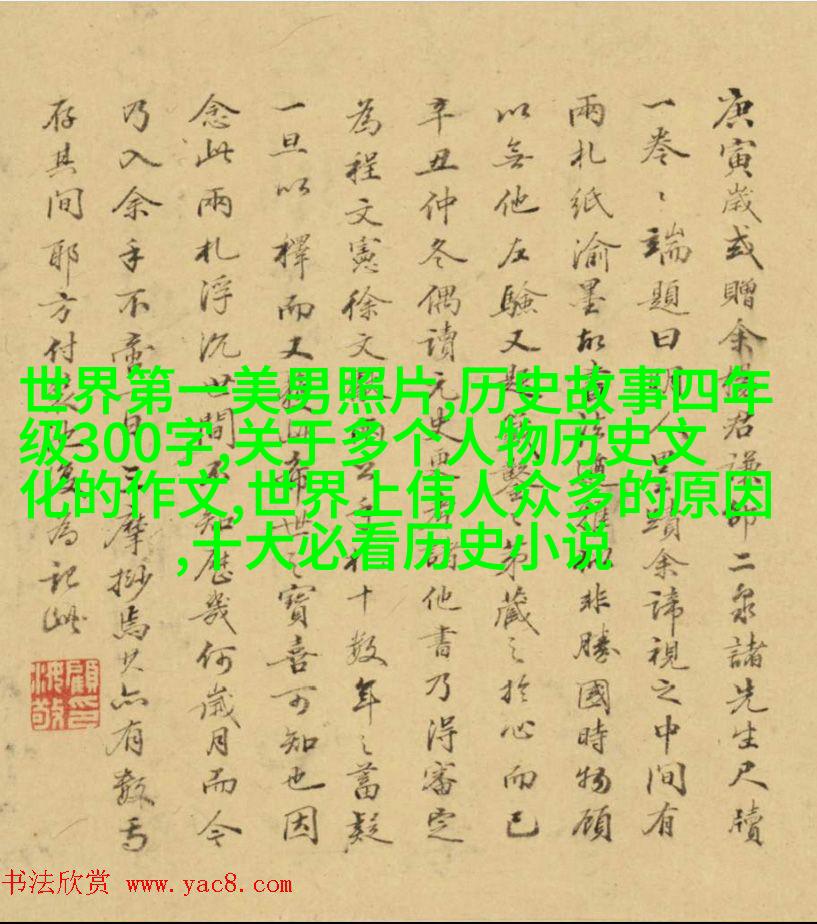 庚寅歲或贈余楊君謙邵二泉諸先生尺牘
一卷〻端題曰明人墨蹟余諦視之中間有
兩札紙渝墨非勝國時物顧
以無他左驗又題弟藏之於心而已
辛丑仲冬偶讀元史他書乃得審定
為程文憲徐文十數年之蓄疑
一旦以釋而又獲希世之寶喜可知也因
念此兩札浮沉世間不知歷幾何歲月而今
乃入余手不摩挲焉其亦有數焉
存其間耶方付復為記此
世界第一美男照片,历史故事四年
级300字,关于多个人物历史文
化的作文,世界上伟人众多的原因
,十大必看历史小说
书法欣赏 www.yac8.com